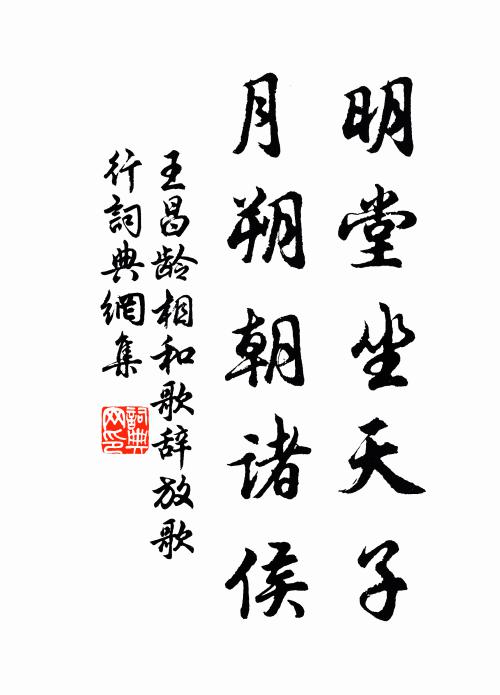 明堂坐天子
月朔朝诸侯
王昌龄相和歌辞放歌
行詞典網集
詞典网印